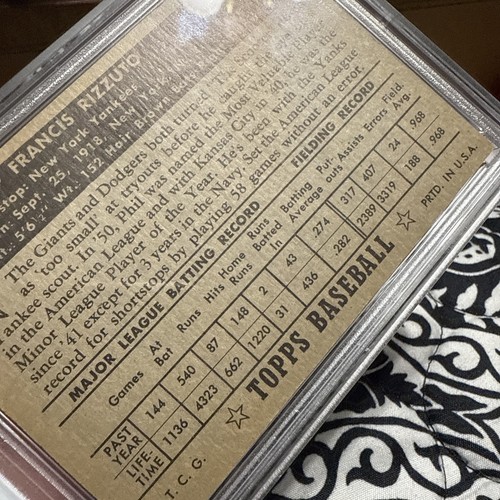 FRANCIS RIZZUTO
stop: New York Yankees
n: Sept. 25, 1918, New York
.: 5'6½" Wt.: 152 Hair: Brown
The Giants and Dodgers both turned
as 'too small' at tryouts before he caught the eye
ankee scout. In '50, Phil was named the Most Valuable Player
in the American League and with Kansas City in '40, he was the
Minor League Player of the Year. He's been with the Yanks
since '41 except for 3 years in the Navy. Set the American League
record for shortstops by playing 58 games without an error.
MAJOR LEAGUE BATTING RECORD FIELDING RECORD
Games At Bat Runs Hits Home Runs Runs Batted In Batting Average Put-outs Assists Errors Field. Avg.
PAST YEAR 144 540 87 148 2 43 .274 317 407 24 .968
LIFE-TIME 1136 4323 662 1220 31 436 .282 2389 3319 188 .968
☆ TOPPS BASEBALL ☆
T. C. G. PRTD. IN U.S.A.